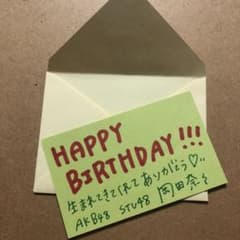 HAPPY
BIRTHDAY!!!
生まれてきてくれてありがとう♡..
AKB48 STU48 岡田奈々